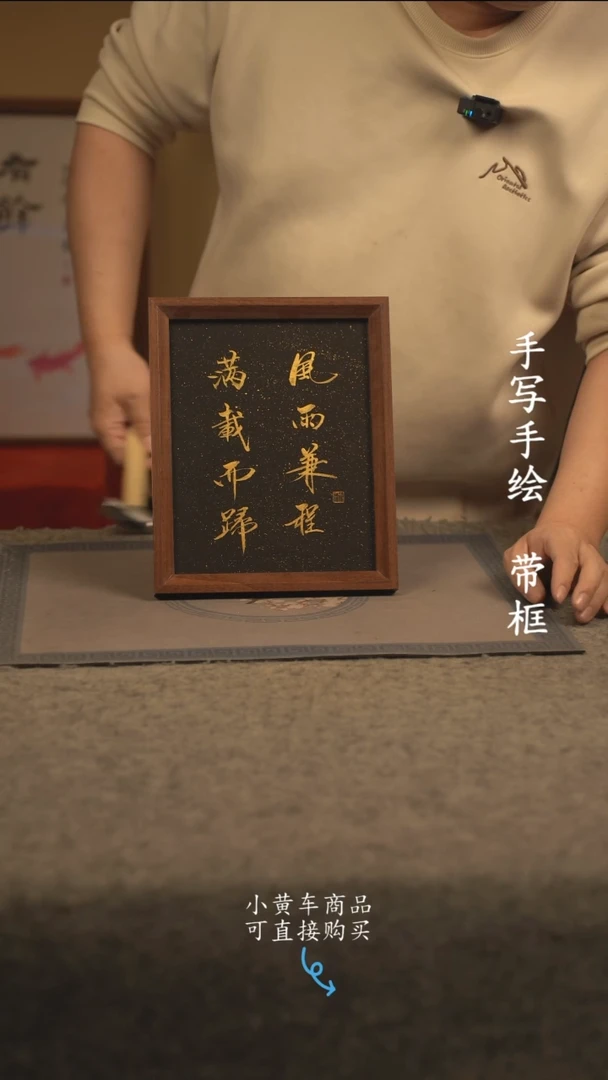 風雨兼程
满載而歸
手写手绘 带框
小黄车商品
可直接购买